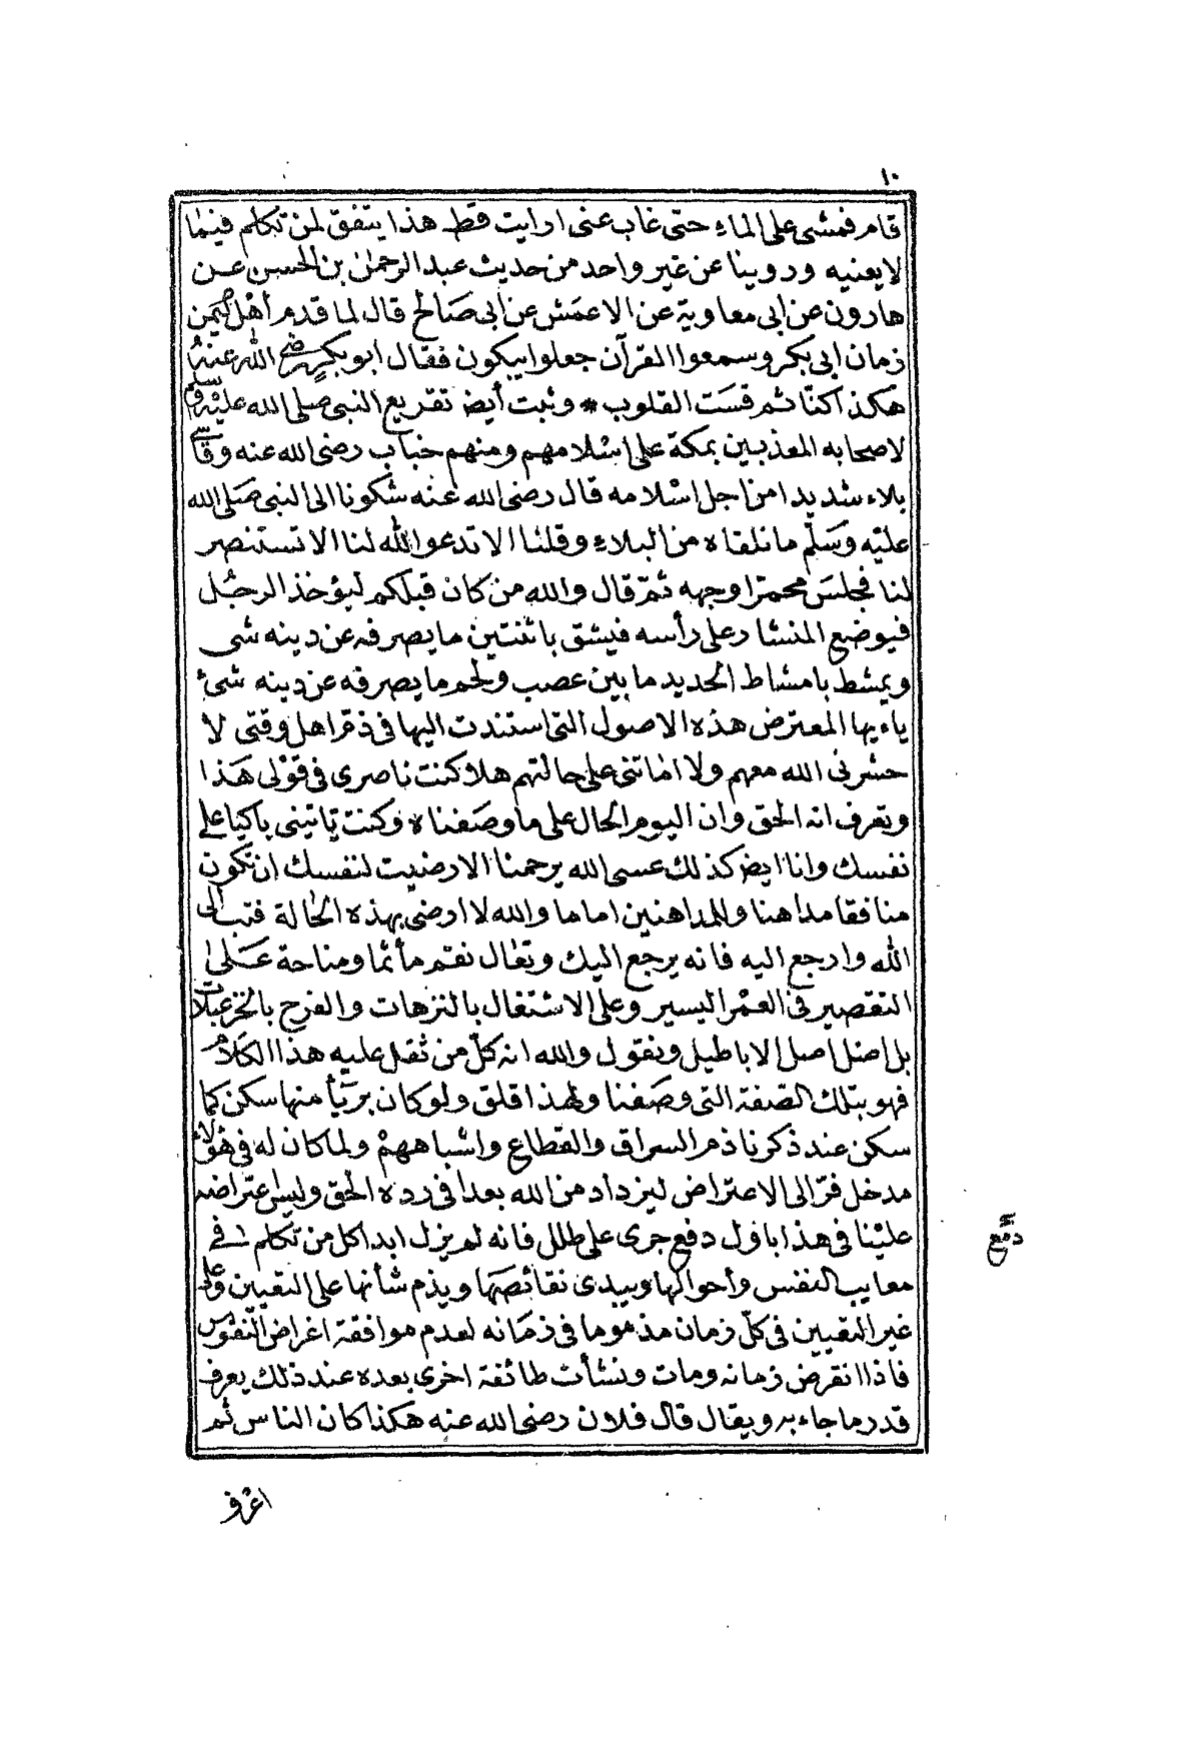 ١٠
قام فمشى على الماء حتى غاب عنى ارايت قط هذا يتفق لمن تكلم فيما
لا يعنيه وروينا عن غير واحد من حديث عبد الرحمن بن الحسن عن
هارون عن ابى معاوية عن الاعمش عن ابى صالح قال لما قدم أهل اليمن
زمان ابى بكر وسمعوا القرآن جعلوا يبكون فقال ابو بكر رضى الله عنه
هكذا كنّا ثم قست القلوب * وثبت أيضا تقريع النبى صلى الله عليه وسلم
لاصحابه المعذبين بمكة على اسلامهم ومنهم خباب رضى الله عنه وقاسى
بلاء شديدا من اجل اسلامه قال رضى الله عنه شكونا الى النبى صلى الله
عليه وسلم ما نلقاه من البلاء وقلنا الا تدعو الله لنا الا تستنصر
لنا فجلس محمرا وجهه ثمّ قال والله من كان قبلكم ليؤخذ الرجل
فيوضع المنشار على رأسه فيشق باثنتين ما يصرفه عن دينه شى
ويمشط بامشاط الحديد ما بين عصب ولحم ما يصرفه عن دينه شئ
ياءيها المعترض هذه الاصول التى استندت اليها فى ذمّ اهل وقتى لا
حشرنى الله معهم ولا اماتنى على حالتهم هلا كنت ناصرى فى قولى هذا
وتعرف انه الحق وان اليوم الحال على ما وصفناه وكنت تاتينى باكيا على
نفسك وانا ايضا كذلك عسى الله يرحمنا الا رضيت لنفسك ان تكون
منافقا مداهنا وللمداهنين اماما والله لا ارضى بهذه الحالة فتب الى
الله وارجع اليه فانه يرجع اليك وتعال نقم مأتما ومناحة على
التقصير فى العمر اليسير وعلى الاشتغال بالنزهات والفرح بالخزعبلات
بل اصل اصل الاباطيل ونقول والله انه كلّ من ثقل عليه هذا الكلام
فهو بتلك الصفة التى وصفنا ولهذا قلق ولو كان بريّا منها سكن كما
سكن عند ذكرنا ذم السراق والقطاع واشباههم ولما كان له فى هؤلاء
مدخل فرّ الى الاعتراض ليزداد من الله بعدا فى رده الحق وليس اعتراضه
علينا فى هذا باول دفع جرى على طلل فانه لم يزل ابدا كل من تكلم فى
معايب النفس وأحوالها ويبدى نقائصها ويذم شأنها على التعيين وعلى
غير التعيين فى كلّ زمان مذموما فى زمانه لعدم موافقة اغراض النفوس
فاذا انقرض زمانه ومات ونشأت طائفة اخرى بعده عند ذلك يعرف
قدر ما جاء به ويقال قال فلان رضى الله عنه هكذا كان الناس ثم
دفع